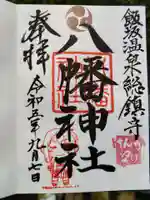 飯坂温泉総鎮守
八幡神社
奉拝
令和五年九月七日